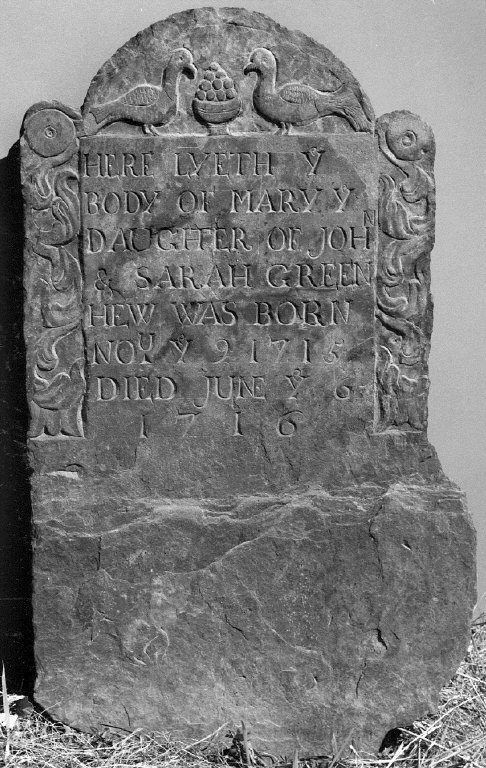 HERE LYETH Yͤ
BODY OF MARY Yͤ
DAUGHTER OF JOHN
& SARAH GREEN
HEW WAS BORN
NOV Yͤ 9 1715
DIED JUNE Yͤ 6
1716